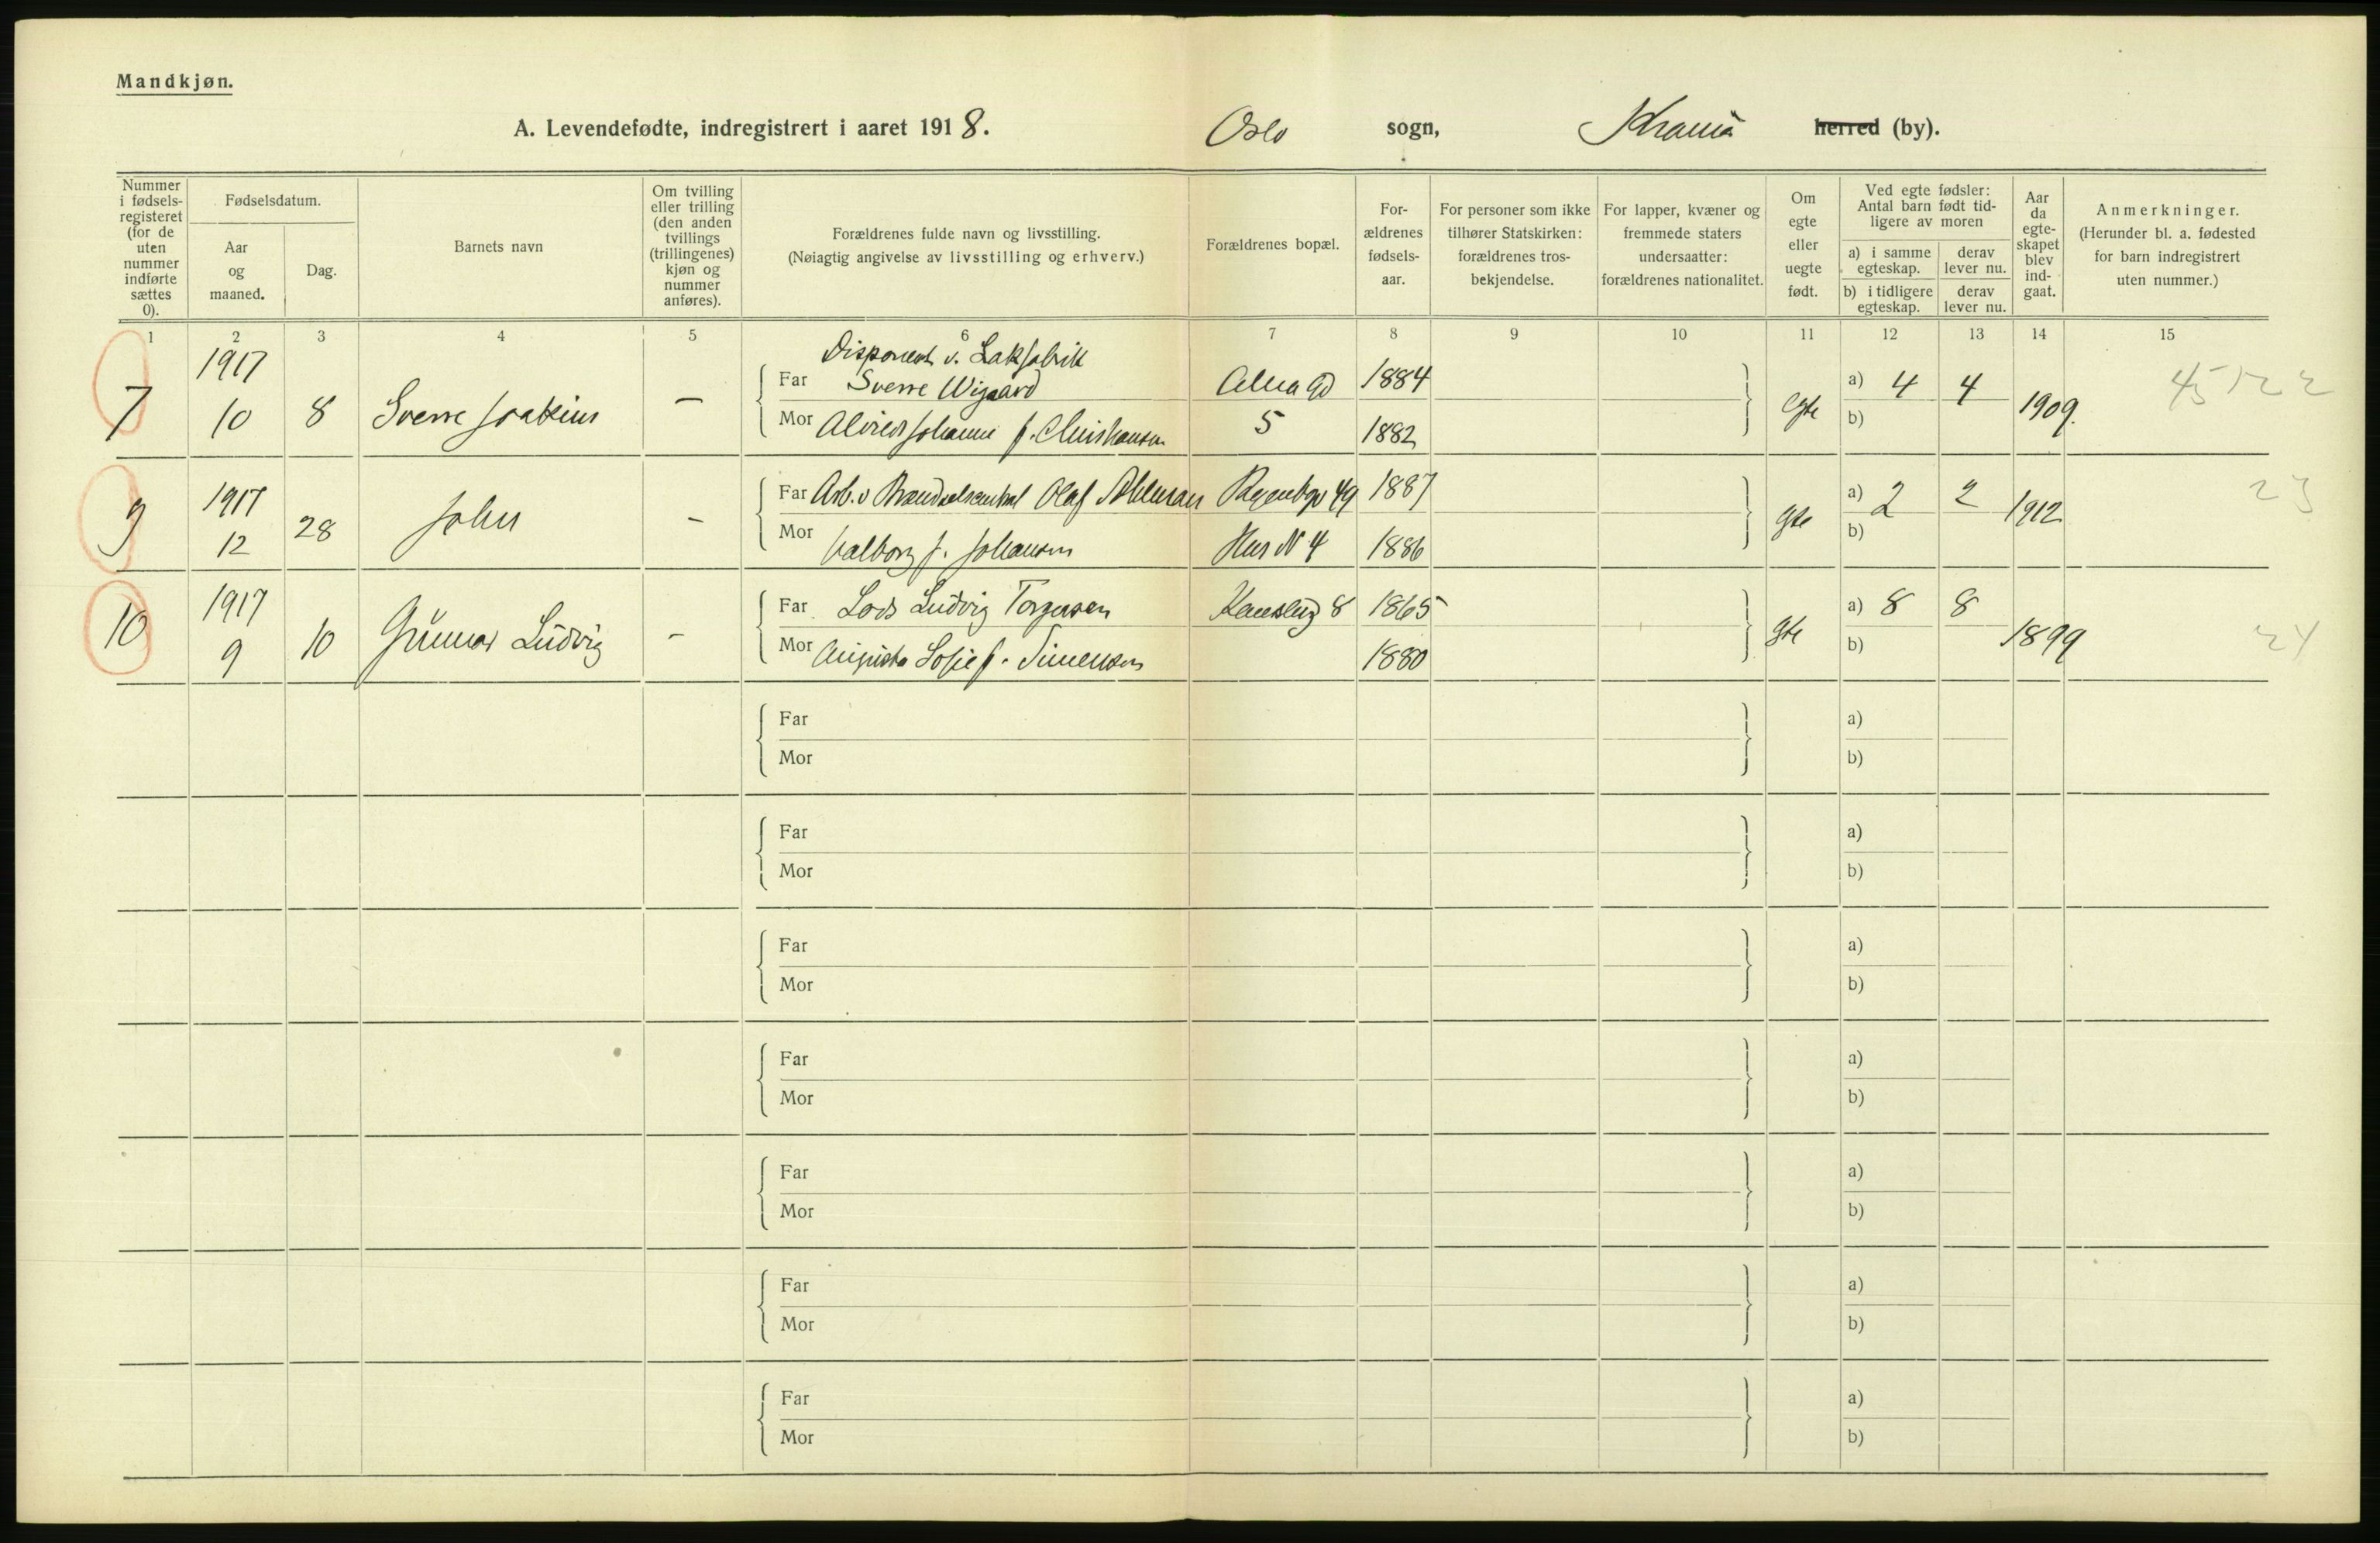 Mandkjøn.
A. Levendefødte, indregistrert i aaret 1918. Oslo sogn, Krania herred (by).
Nummer i fødsels-registeret (for de uten nummer indførte sættes 0).
Fødselsdatum.
Aar og maaned.
Dag.
Barnets navn
Om tvilling eller trilling (den anden tvillings (trillingenes) kjøn og nummer anføres).
Forældrenes fulde navn og livsstilling.
(Nøiagtig angivelse av livsstilling og erhverv.)
Forældrenes bopæl.
For-ældrenes fødsels-aar.
For personer som ikke tilhører Statskirken: forældrenes tros-bekjendelse.
For lapper, kvæner og fremmede staters undersaatter: forældrenes nationalitet.
Om egte eller uegte født.
Ved egte fødsler: Antal barn født tid-ligere av moren
a) i samme egteskap.
derav lever nu.
b) i tidligere egteskap.
derav lever nu.
Aar da egte-skapet blev ind-gaat.
Anmerkninger.
(Herunder bl. a. fødested for barn indregistrert uten nummer.)
1 2 3 4 5 6 7 8 9 10 11 12 13 14 15
Disponent v. Lakfabrik
7 1917 10 8 Sverre Joakim - Far Sverre Wigaard Alna Gd 1884 egte a) 4 4 1909. 45122
Mor Johanne f. Christiansen 5 1882 b)
9 1917 12 28 John - Far Arb. v Brændselscentral Olaf 49 1887 gte a) 2 2 1912 23
Mor Valborg f. Johansen Hus N 4 1886 b)
10 1917 9 10 Gunnar Ludvig - Far Lods Ludvig Torgersen 8 1865 gte a) 8 8 1899 24
Mor Augusta Sofie f. Simensen 1880 b)
Far a)
Mor b)
Far a)
Mor b)
Far a)
Mor b)
Far a)
Mor b)
Far a)
Mor b)
Far a)
Mor b)
Far a)
Mor b)